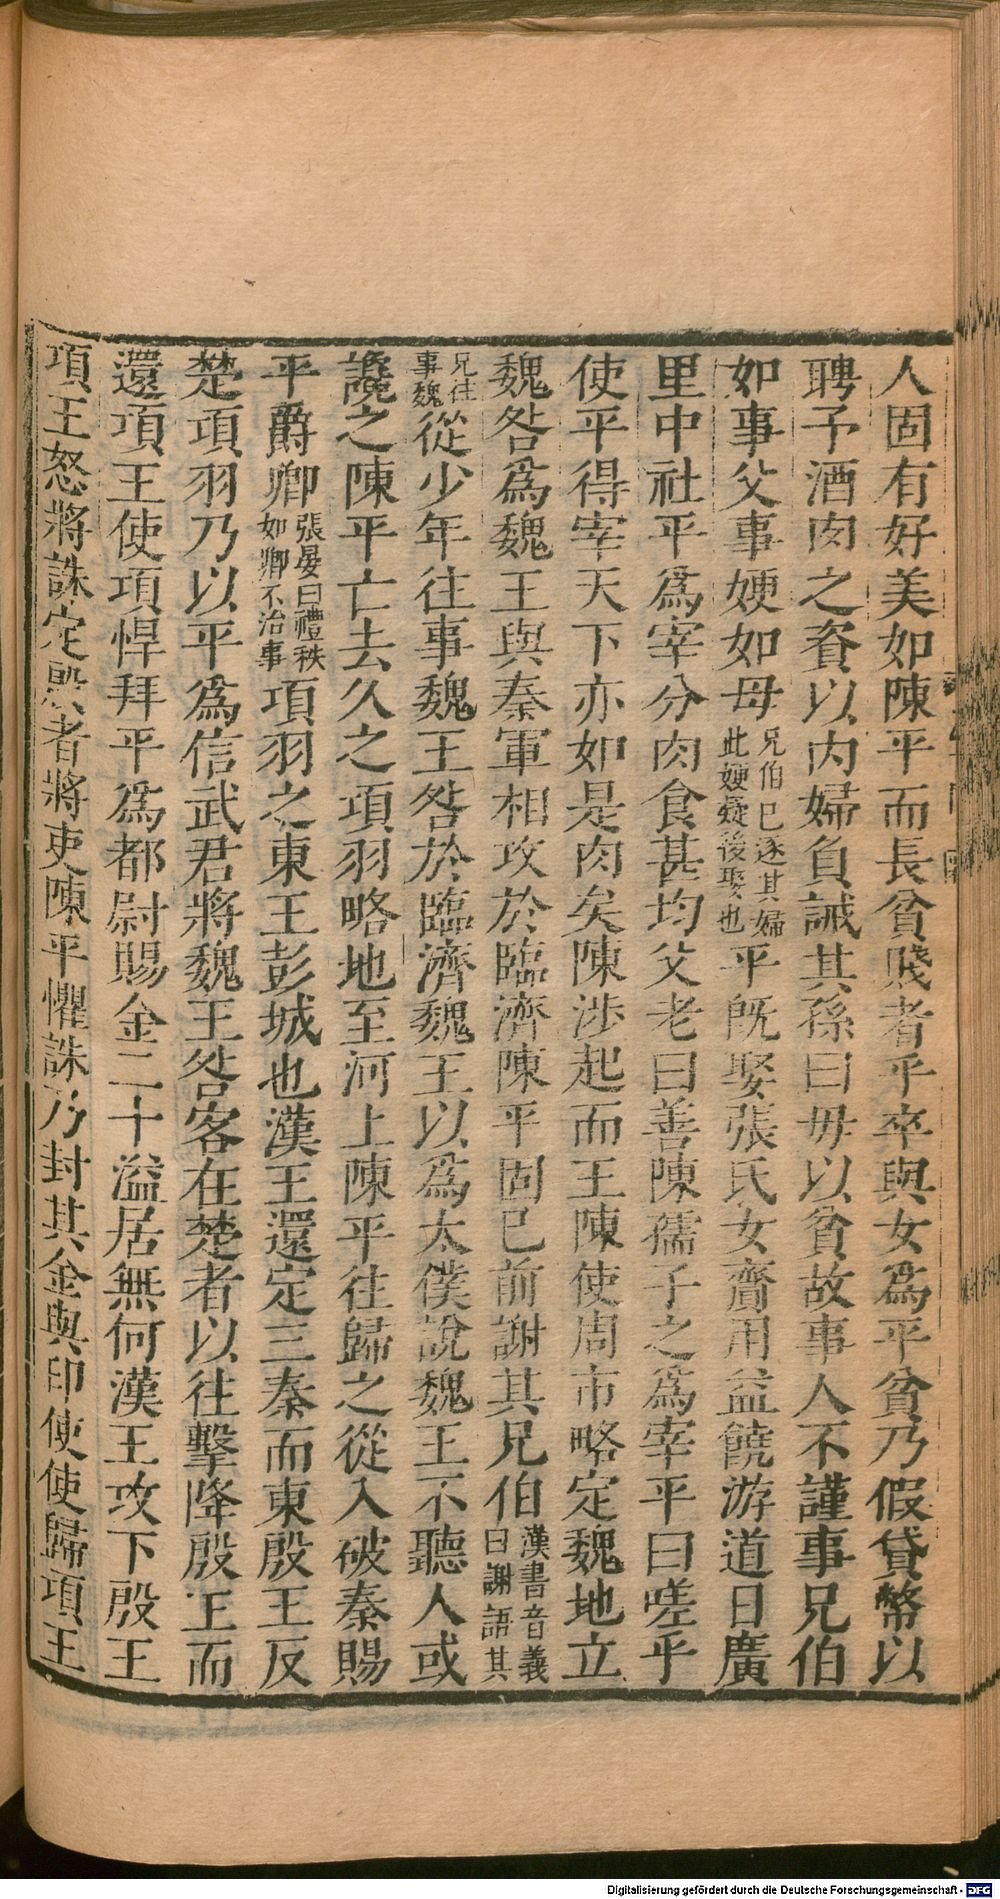 人固有好美如陳平而長貧賤者乎卒與女爲平貧乃假貸幣以
聘予酒肉之資以内婦負誡其孫曰毋以貧故事人不謹事兄伯
如事父事嫂如母兄伯已逐其婦此嫂疑後娶也平旣娶張氏女齎用益饒游道日廣
里中社平爲宰分肉食甚均父老曰善陳孺子之爲宰平曰嗟乎
使平得宰天下亦如是肉矣陳涉起而王陳使周市略定魏地立
魏咎爲魏王與秦軍相攻於臨濟陳平固已前謝其兄伯漢書音義曰謝語其
兄往事魏從少年往事魏王咎於臨濟魏王以爲太僕說魏王不聽人或
讒之陳平亡去久之項羽略地至河上陳平往歸之從入破秦賜
平爵卿張晏曰禮秩如卿不治事項羽之東王彭城也漢王還定三秦而東殷王反
楚項羽乃以平爲信武君將魏王咎客在楚者以往擊降殷王而
還項王使項悍拜平爲都尉賜金二十溢居無何漢王攻下殷王
項王怒將誅定殷者將吏陳平懼誅乃封其金與印使使歸項王
Digitalisierung gefördert durch die Deutsche Forschungsgemeinschaft - DFG